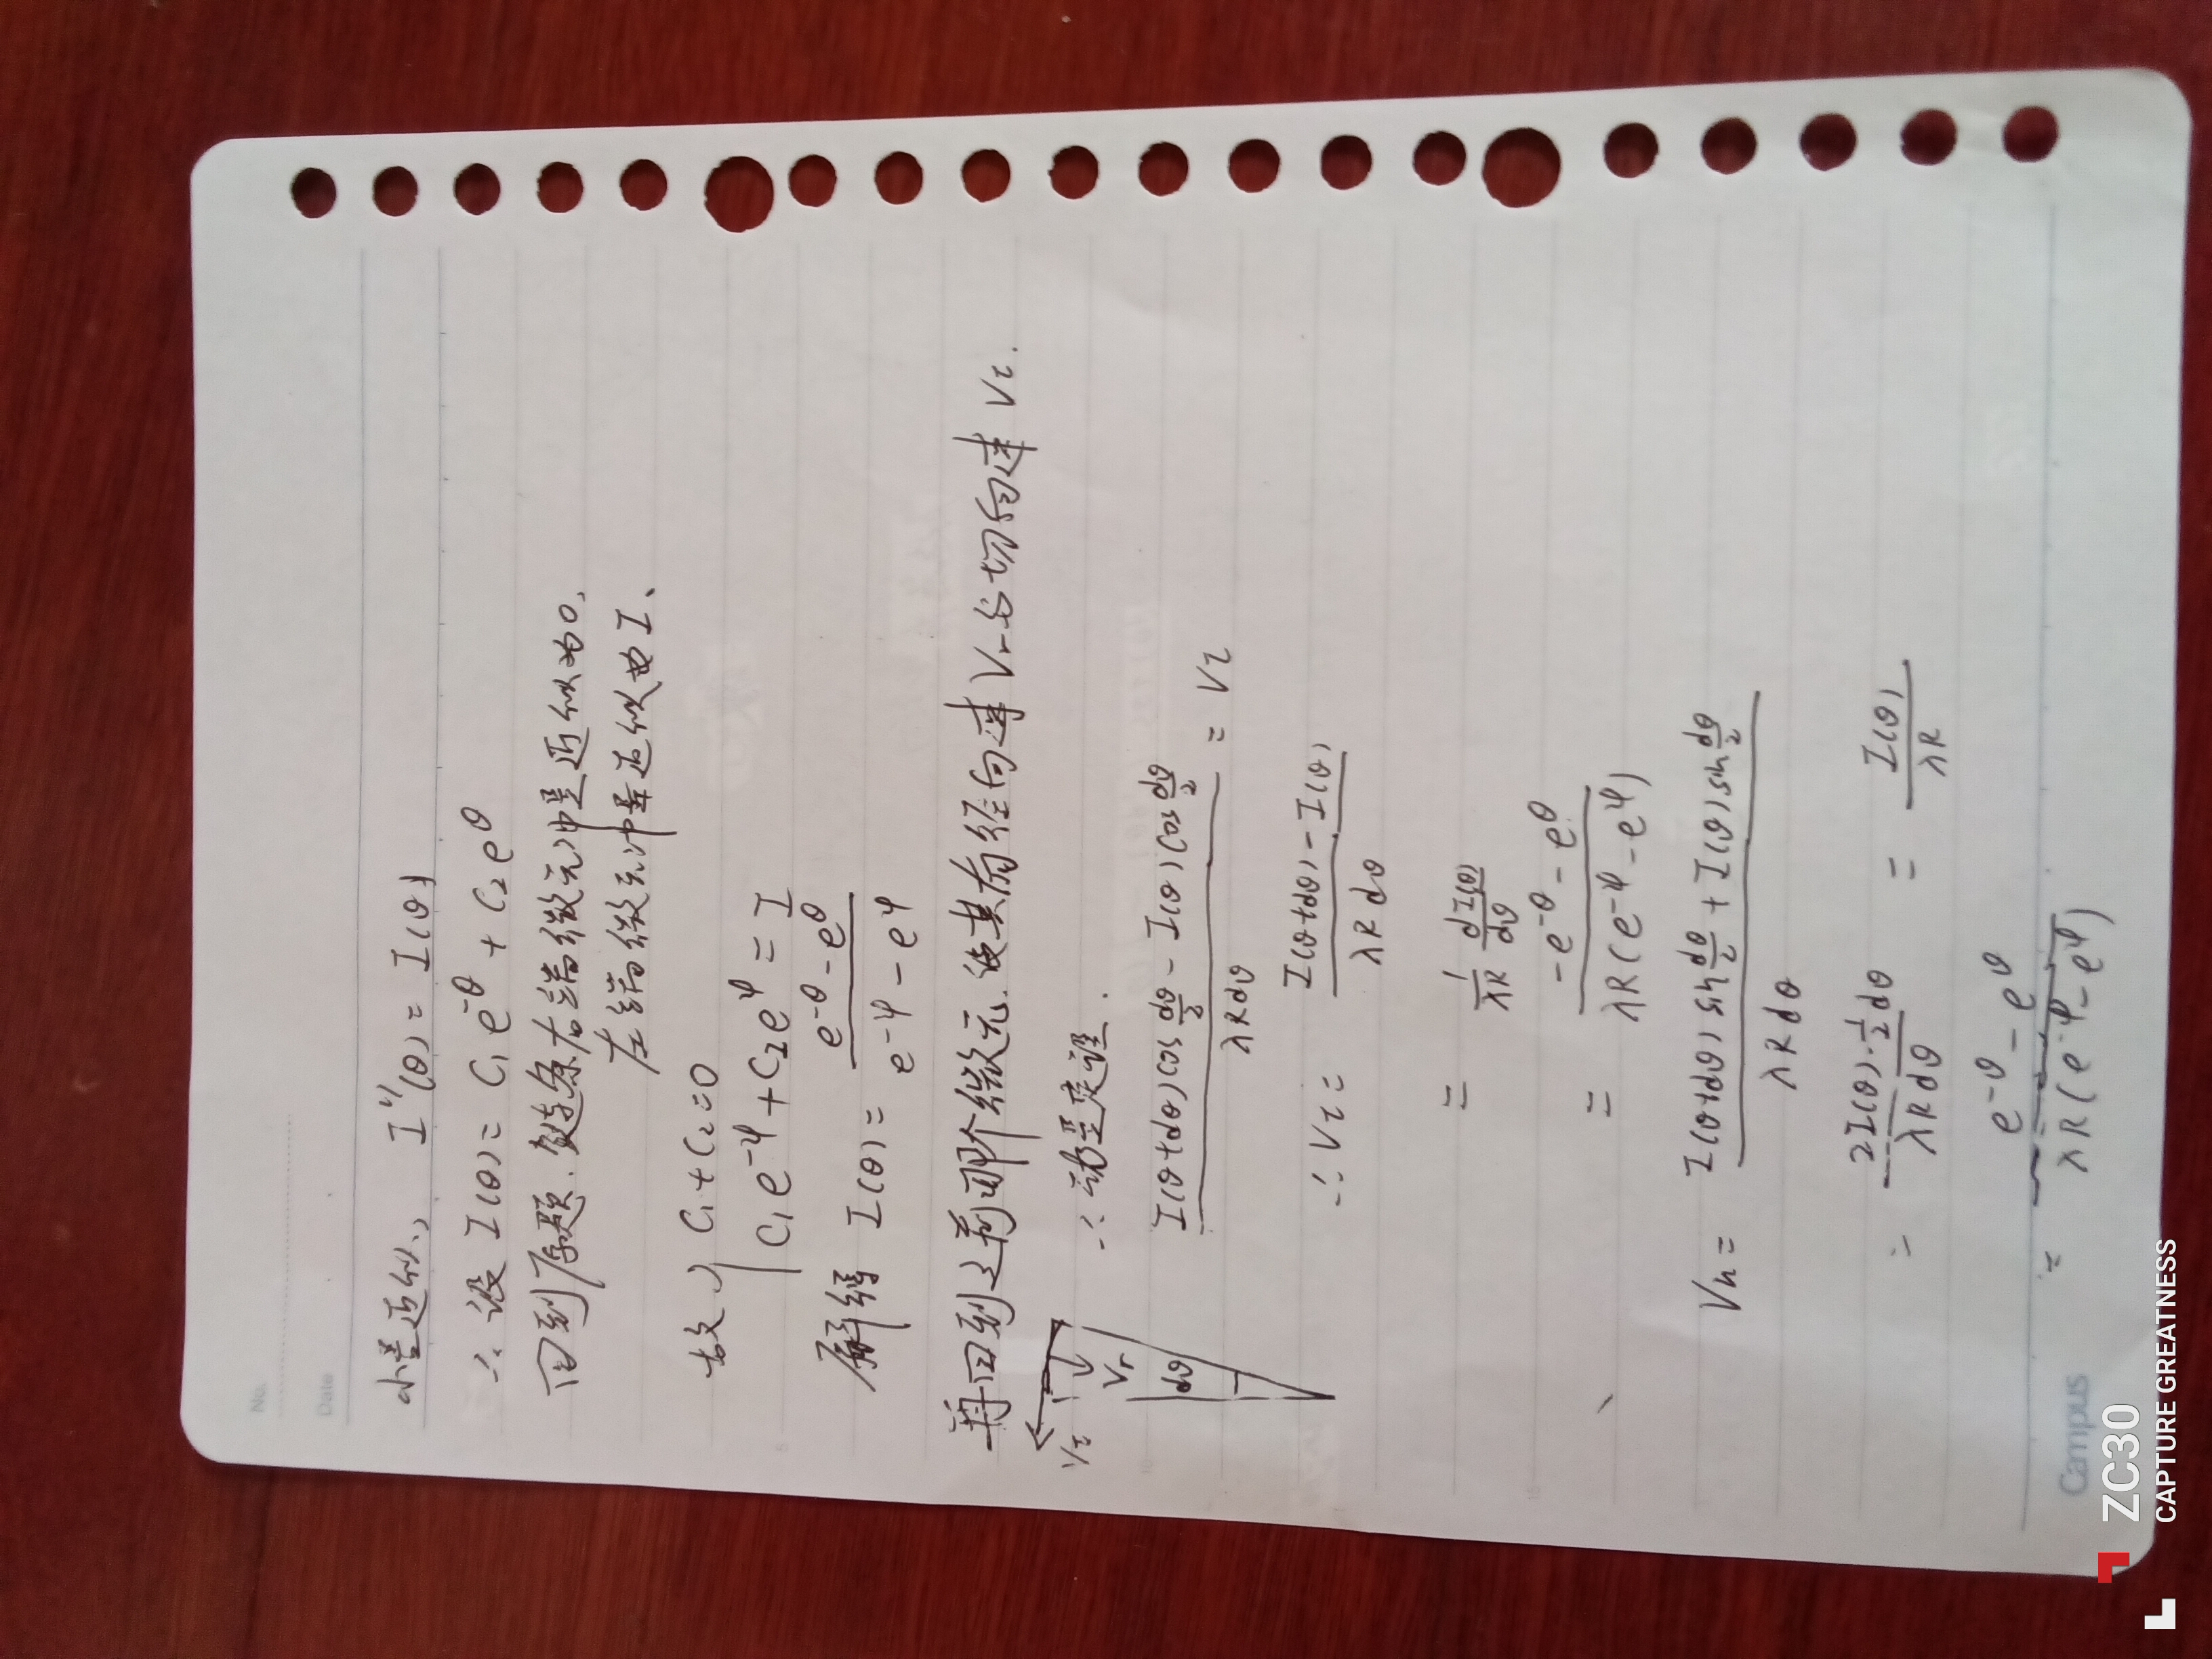 No.
Date
小量近似、 I''(θ) = I(θ)
∴ 设 I(θ) = C₁e^{-θ} + C₂e^{θ}
回到原题、链条右端微元冲量近似为0,
左端微元冲量近似为I、
故 { C₁ + C₂ = 0
C₁e^{-φ} + C₂e^{φ} = I
解得 I(θ) = \frac{e^{-θ} - e^{θ}}{e^{-φ} - e^{φ}}
再回到之前那个微元、设其有径向速Vr与切向速Vτ.
Vτ Vr dθ
∴ 动量定理.
\frac{I(θ+dθ)cos\frac{dθ}{2} - I(θ)cos\frac{dθ}{2}}{λRdθ} = Vτ
∴ Vτ = \frac{I(θ+dθ) - I(θ)}{λRdθ}
= \frac{1}{λR} \frac{dI(θ)}{dθ}
= \frac{-e^{-θ} - e^{θ}}{λR(e^{-φ} - e^{φ})}
Vn = \frac{I(θ+dθ)sin\frac{dθ}{2} + I(θ)sin\frac{dθ}{2}}{λRdθ}
= \frac{2I(θ)·\frac{1}{2}dθ}{λRdθ} = \frac{I(θ)}{λR}
= \frac{e^{-θ} - e^{θ}}{λR(e^{-φ} - e^{φ})}
Campus
ZC30
CAPTURE GREATNESS